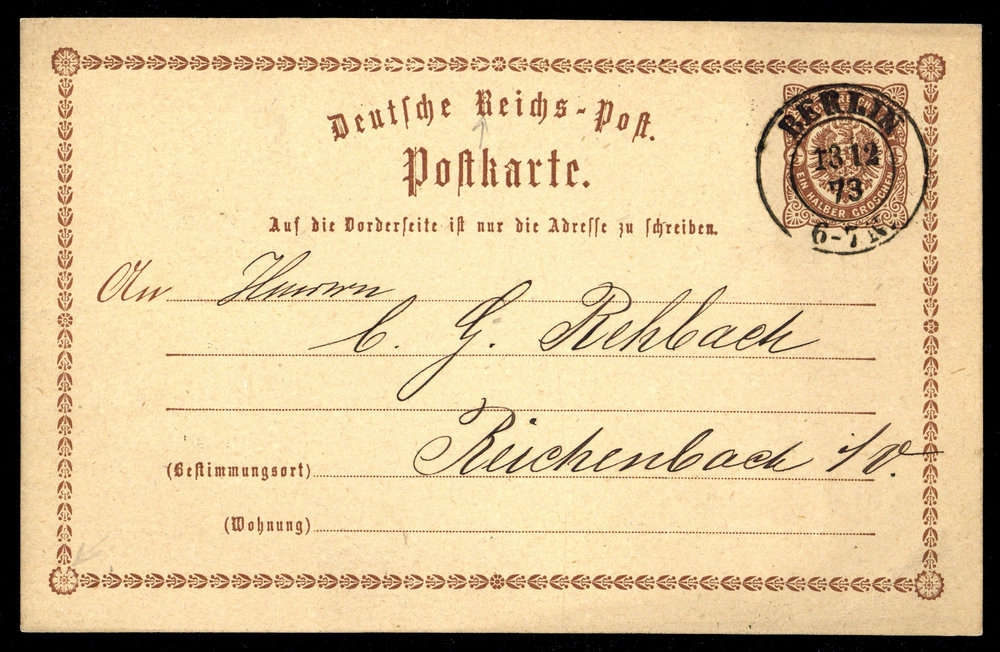 Deutsche Reichs-Post.
Postkarte.
BERLIN
13 12
73
6-7 N.
EIN HALBER GROSCHEN
Auf die Vorderseite ist nur die Adresse zu schreiben.
An Herrn
C. G. Rehbach
(Bestimmungsort) Reichenbach i/V.
(Wohnung)